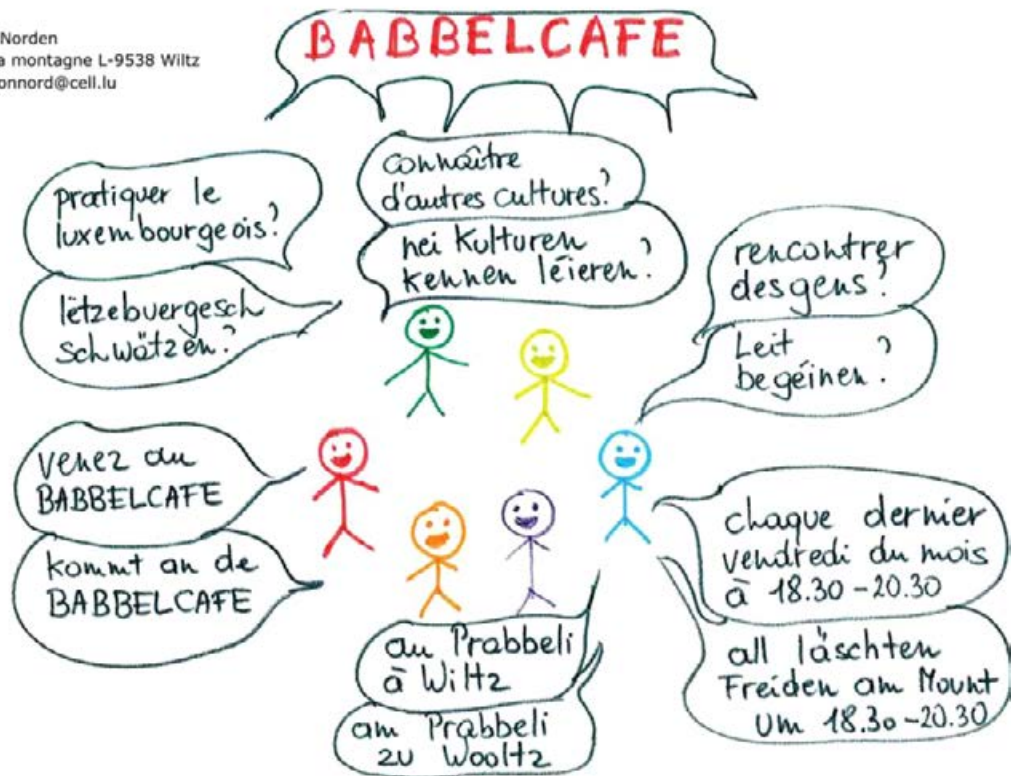 Norden
a montagne L-9538 Wiltz
onnord@cell.lu
BABBELCAFE
pratiquer le
luxembourgeois?
lëtzebuergesch
schwätzen?
connaître
d'autres cultures?
nei Kulturen
kennen léieren?
rencontrer
des gens?
Leit
begéinen?
venez au
BABBELCAFE
kommt an de
BABBELCAFE
au Prabbeli
à Wiltz
am Prabbeli
zu Wooltz
chaque dernier
vendredi du mois
à 18.30-20.30
all läschten
Freiden am Mount
um 18.30-20.30